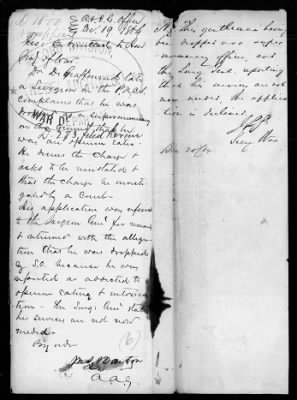 A & I G Office
Dec. 19 1864
Resp. Submitted to Hon
Sec of War.
Dr De Graffenried late
a Surgeon in the P.A.C.S.
complains that he was
dropped as a supernumerary
on the ground that he
was an opium eater
He denies the charge &
asks to be reinstated &
that the charge be investi
gated by a Court
His application was referred
to the Surgeon Genl for remark
& returned with the allega
tion that he was dropped
by S.O. because he was
reported as addicted to
opium eating & intoxica
tion. The Surg. Genl states
his services are not now
needed.
By order
A A G
(6)
WAR DEPARTMENT
A.G. This gentleman having
been dropped as a super
numerary officer, and
the Surg. Genl. reporting
that his services are not
now needed, the applica
tion is declined.
Secy War
Dec